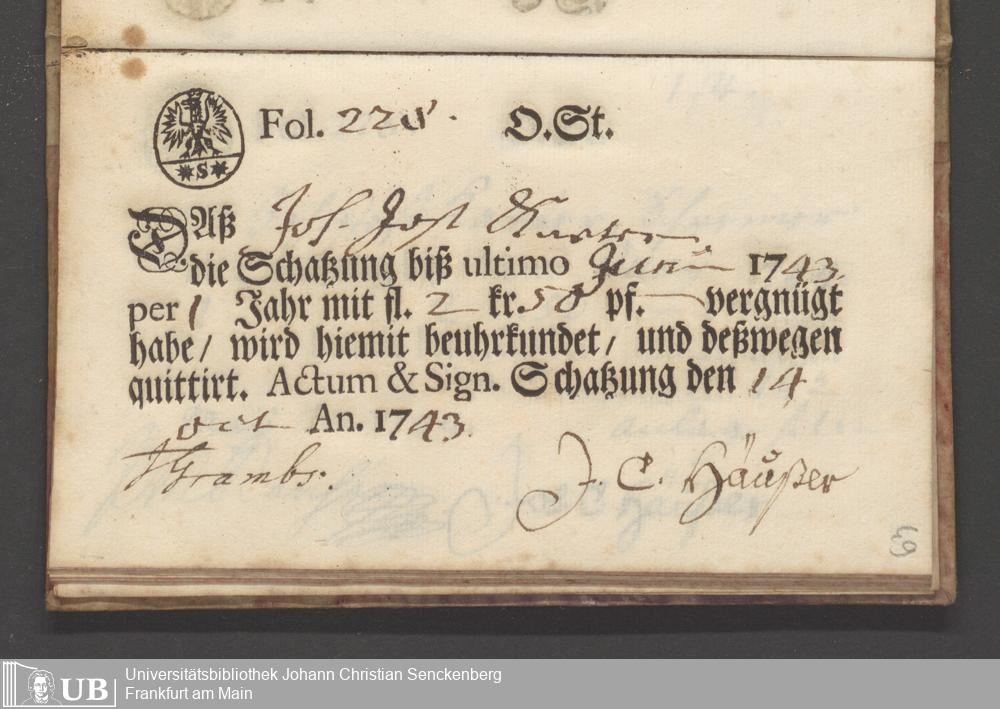 S
Fol. 228. O.St.
Daß Joh. Jost
die Schatzung biß ultimo Junii 1743.
per 1 Jahr mit fl. 2 kr. 50 pf. — vergnügt
habe / wird hiemit beuhrkundet / und deßwegen
quittirt. Actum & Sign. Schatzung den 14
oct An. 1743.
Grambs. J. C. Häußer
63
UB Universitätsbibliothek Johann Christian Senckenberg
Frankfurt am Main